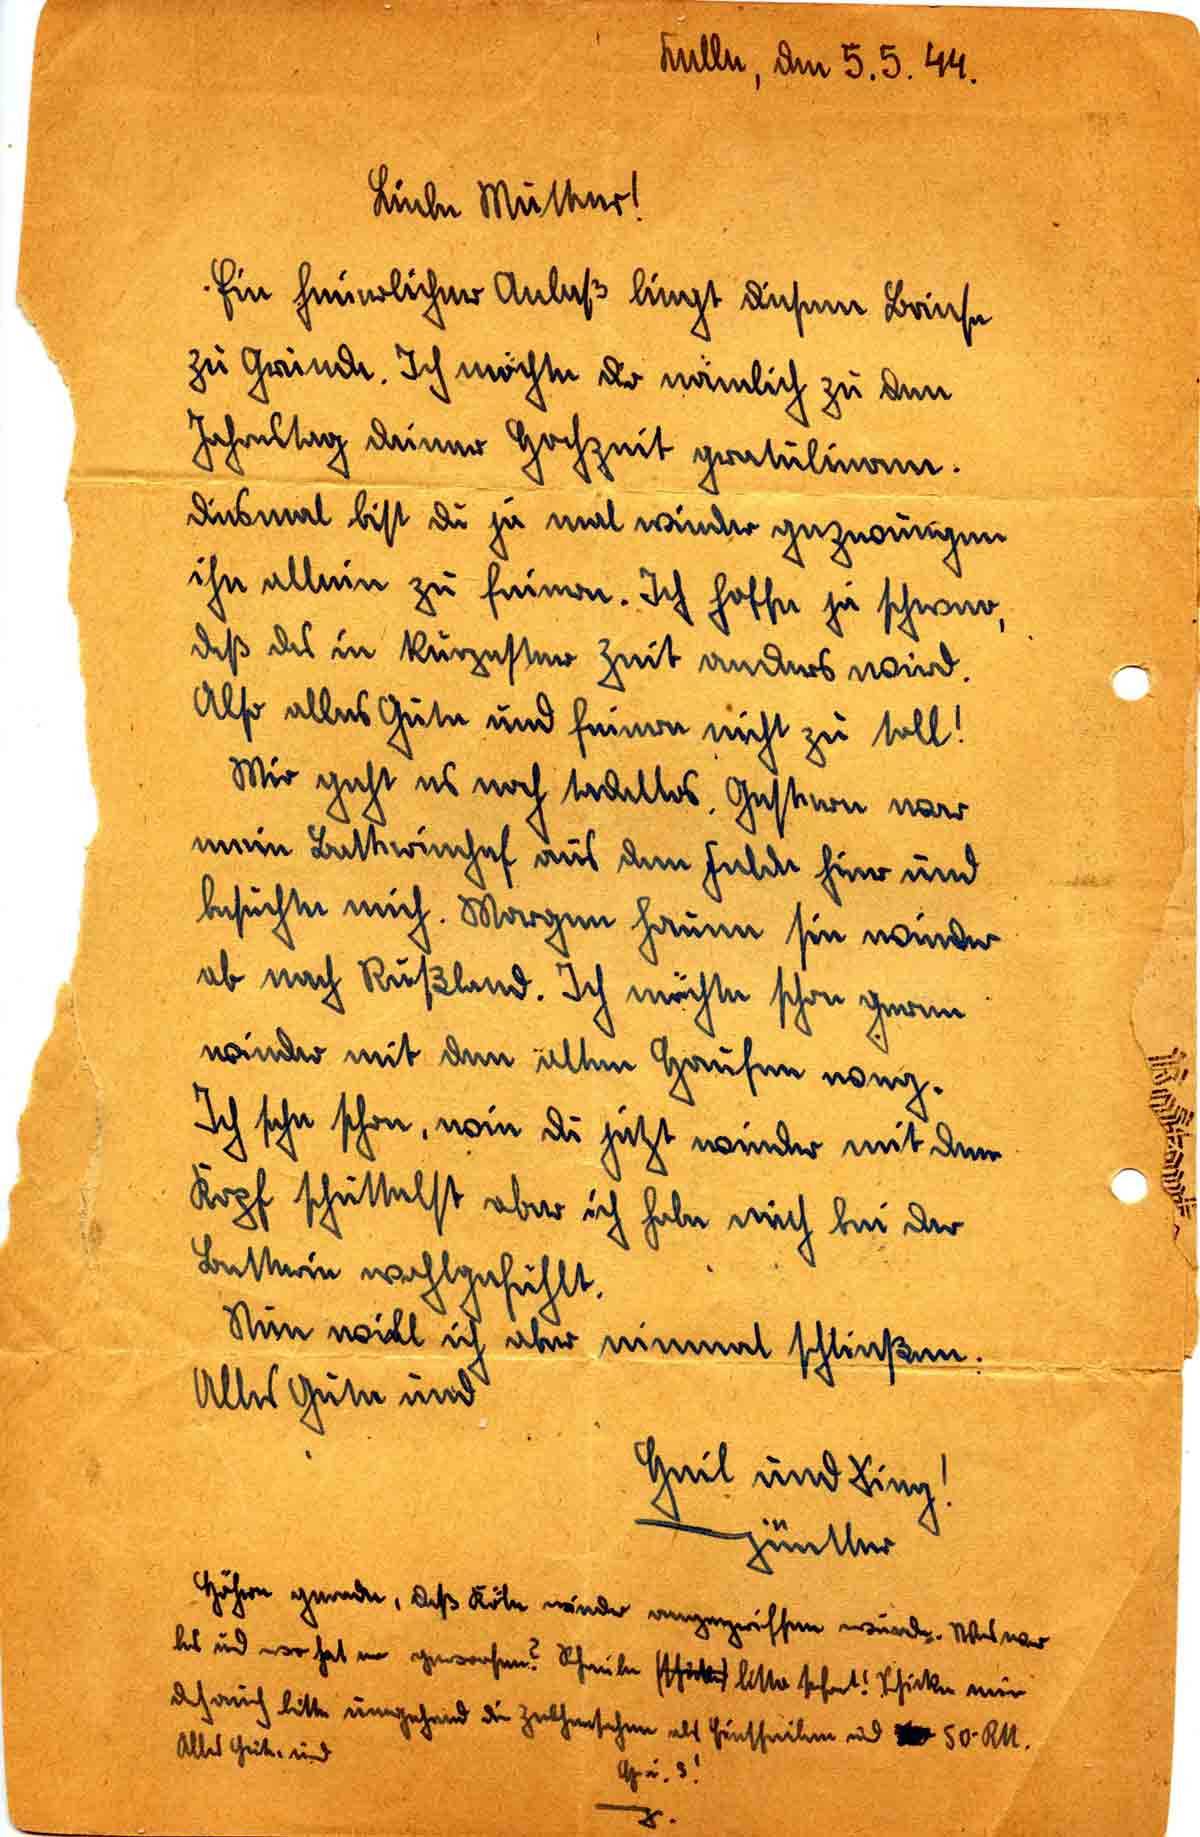 den 5.5.44.
Liebe Mutter!
Ein feierlicher Anlaß liegt diesem Briefe
zu Grunde. Ich möchte dir nämlich zu dem
Jahrestag deiner Hochzeit gratulieren.
diesmal bist du ja mal wieder gezwungen
ihn allein zu feiern. Ich hoffe ja schwer,
daß das in kürzester Zeit anders wird.
Also alles Gute und feiere nicht zu toll!
Mir geht es noch tadellos. Gestern war
mein Batteriechef aus dem Felde hier und
besuchte mich. Morgen hauen sie wieder
ab nach Rußland. Ich möchte schon gerne
wieder mit dem alten Haufen weg.
Ich sehe schon, wie du jetzt wieder mit dem
Kopf schüttelst aber ich habe mich bei der
Batterie wohlgefühlt.
Nun will ich aber einmal schließen.
Alles Gute und
Heil und Sieg!
Günther
Höre gerade, daß Köln wieder angegriffen wurde. Was war
los und wo hat er geworfen? Schreibe bitte sofort! Schicke mir
doch auch bitte umgehend die als und 50.-RM.
Alles Gute und
H. u. S!
G.